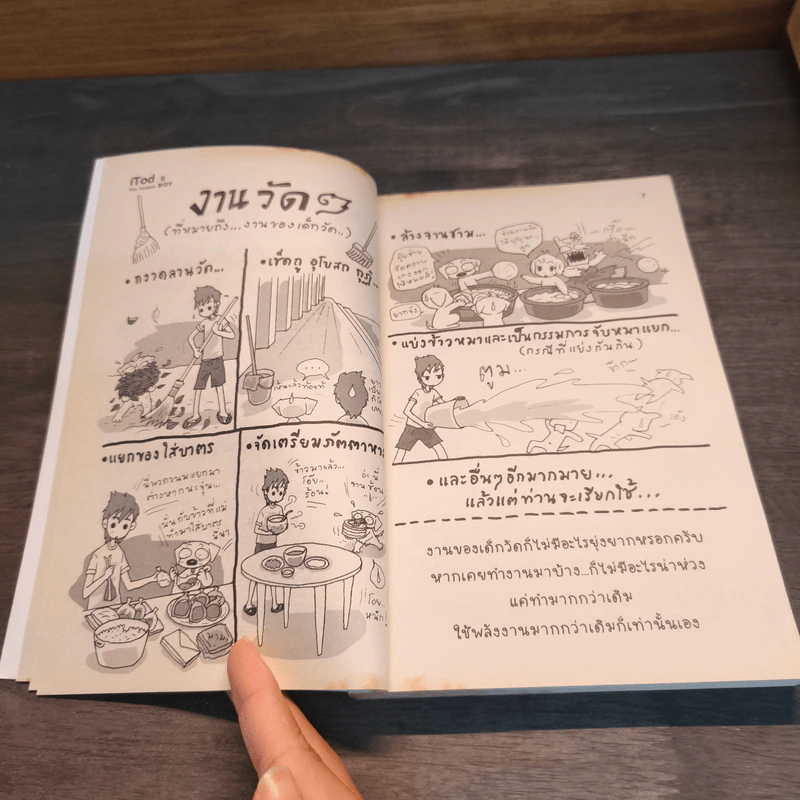 iTod
The Temple Boy
งานวัด ๆ
(ที่หมายถึง...งานของเด็กวัด..)
• กวาดลานวัด...
• เช็ดถู อุโบสถ กุฏิ...
• แยกของใส่บาตร
นี่พวกขนมแยกมา
ต่างหากนะจุ่น...
นั่นกับข้าวที่แม่
ทำมาใส่บาตร
นี่นา
มาม่า
• จัดเตรียมภัตตาหาร
ข้าวมาแล้ว...
โอ๊ย..
ร้อน!
โอย..
หนัก!
7
• ล้างจานชาม...
• แบ่งข้าวหมาและเป็นกรรมการจับหมาแยก...
(กรณีที่แย่งกันกิน)
ตูม...
เอ๋ง
• และอื่นๆ อีกมากมาย...
แล้วแต่ท่านจะเรียกใช้...
งานของเด็กวัดก็ไม่มีอะไรยุ่งยากหรอกครับ
หากเคยทำงานมาบ้าง...ก็ไม่มีอะไรน่าห่วง
แค่ทำมากกว่าเดิม
ใช้พลังงานมากกว่าเดิมก็เท่านั้นเอง